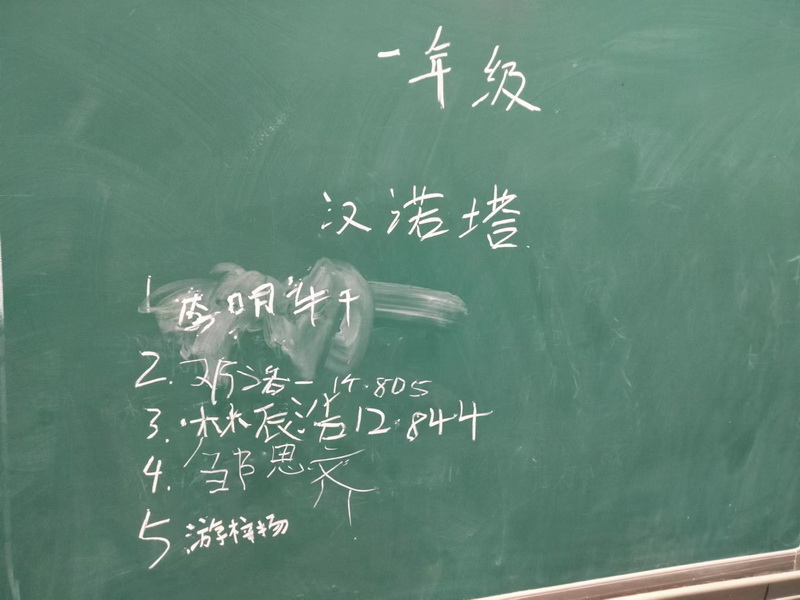 一年级
汉诺塔
1 明
2. 邓洛一 14.805
3. 林辰浩 12.844
4. 邹思齐
5 游梓扬